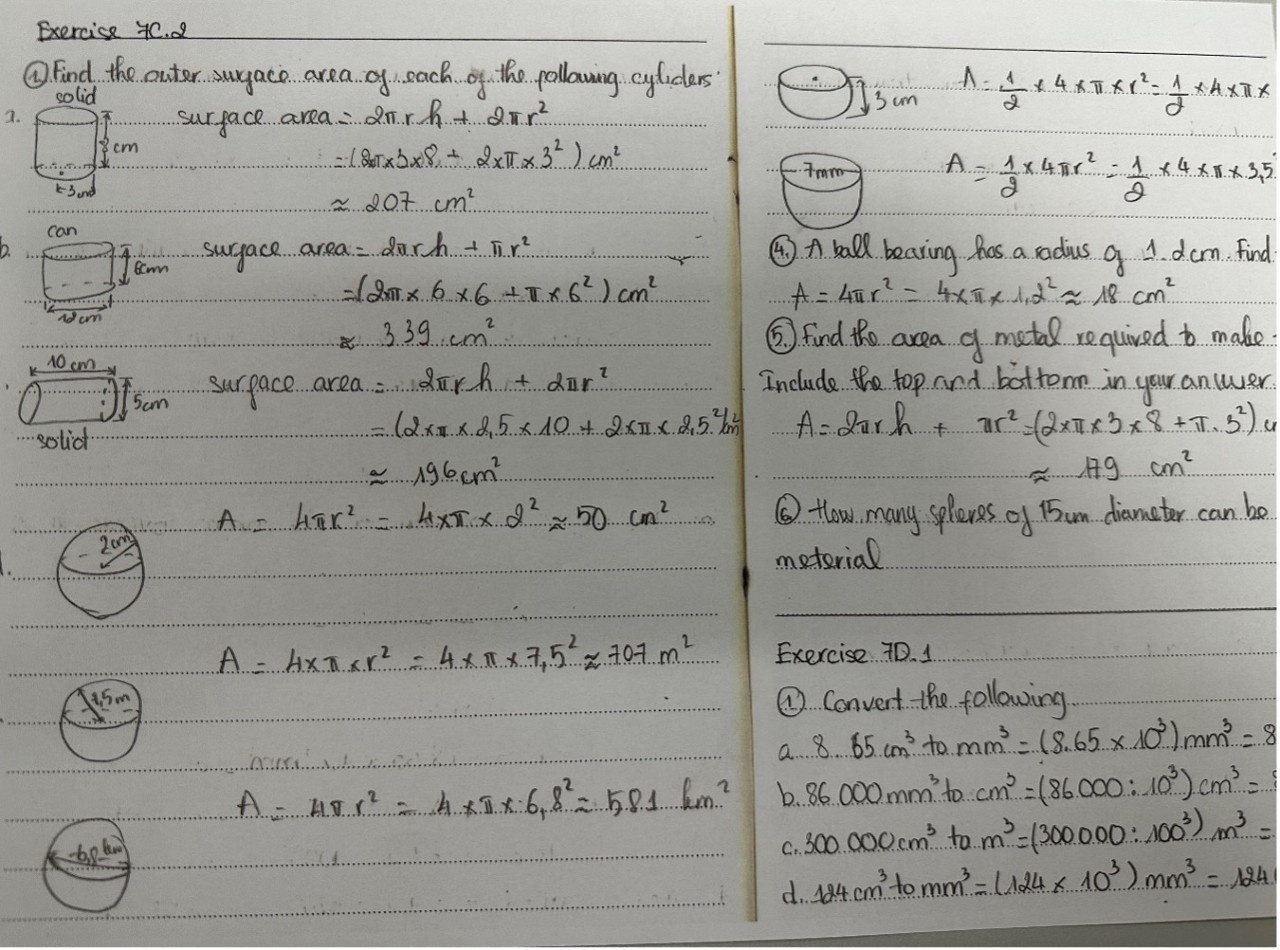 Exercise 7C.2
① Find the outer surface area of each of the following cyliders
solid
a.
surface area = 2πrh + 2πr²
cm
= (2π×3×8 + 2×π×3²) cm²
≈ 207 cm²
can
b.
surface area = 2πrh + πr²
6cm
= (2π × 6 × 6 + π × 6²) cm²
12cm
≈ 339 cm²
10 cm
surface area = 2πrh + 2πr²
5cm
= (2×π × 2,5 × 10 + 2×π × 2,5²)
solid
≈ 196 cm²
A = 4πr² = 4×π × 2² ≈ 50 cm²
2cm
A = 4×π×r² = 4×π×7,5² ≈ 707 m²
7,5m
A = 4πr² = 4×π×6,8² = 581 km²
6,8 km
A = 1/2 × 4 × π × r² = 1/2 × 4 × π ×
3 cm
A = 1/2 × 4πr² = 1/2 × 4 × π × 3,5
7mm
④ A ball bearing has a radius of 1.2cm. Find
A = 4πr² = 4×π×1,2² ≈ 18 cm²
⑤ Find the area of metal required to make
Include the top and bottom in your answer
A = 2πrh + πr² = (2×π×3×8 + π.3²)
≈ 179 cm²
⑥ How many spheres of 15cm diameter can be
meterial
Exercise 7D.1
① Convert the following
a. 8.65 cm³ to mm³ = (8.65 × 10³) mm³ = 8
b. 86.000 mm³ to cm³ = (86.000 : 10³) cm³ =
c. 300.000 cm³ to m³ = (300.000 : 100³) m³ =
d. 124 cm³ to mm³ = (124 × 10³) mm³ = 124